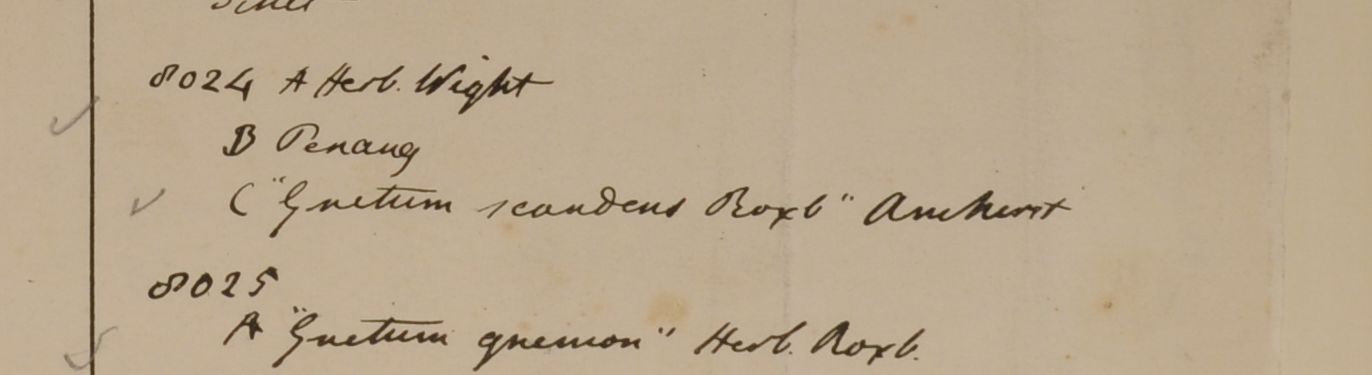 8024 A Herb. Wight
B Penang
C "Gnetum scandens Roxb" Amherst
8025
A "Gnetum gnemon" Herb. Roxb.